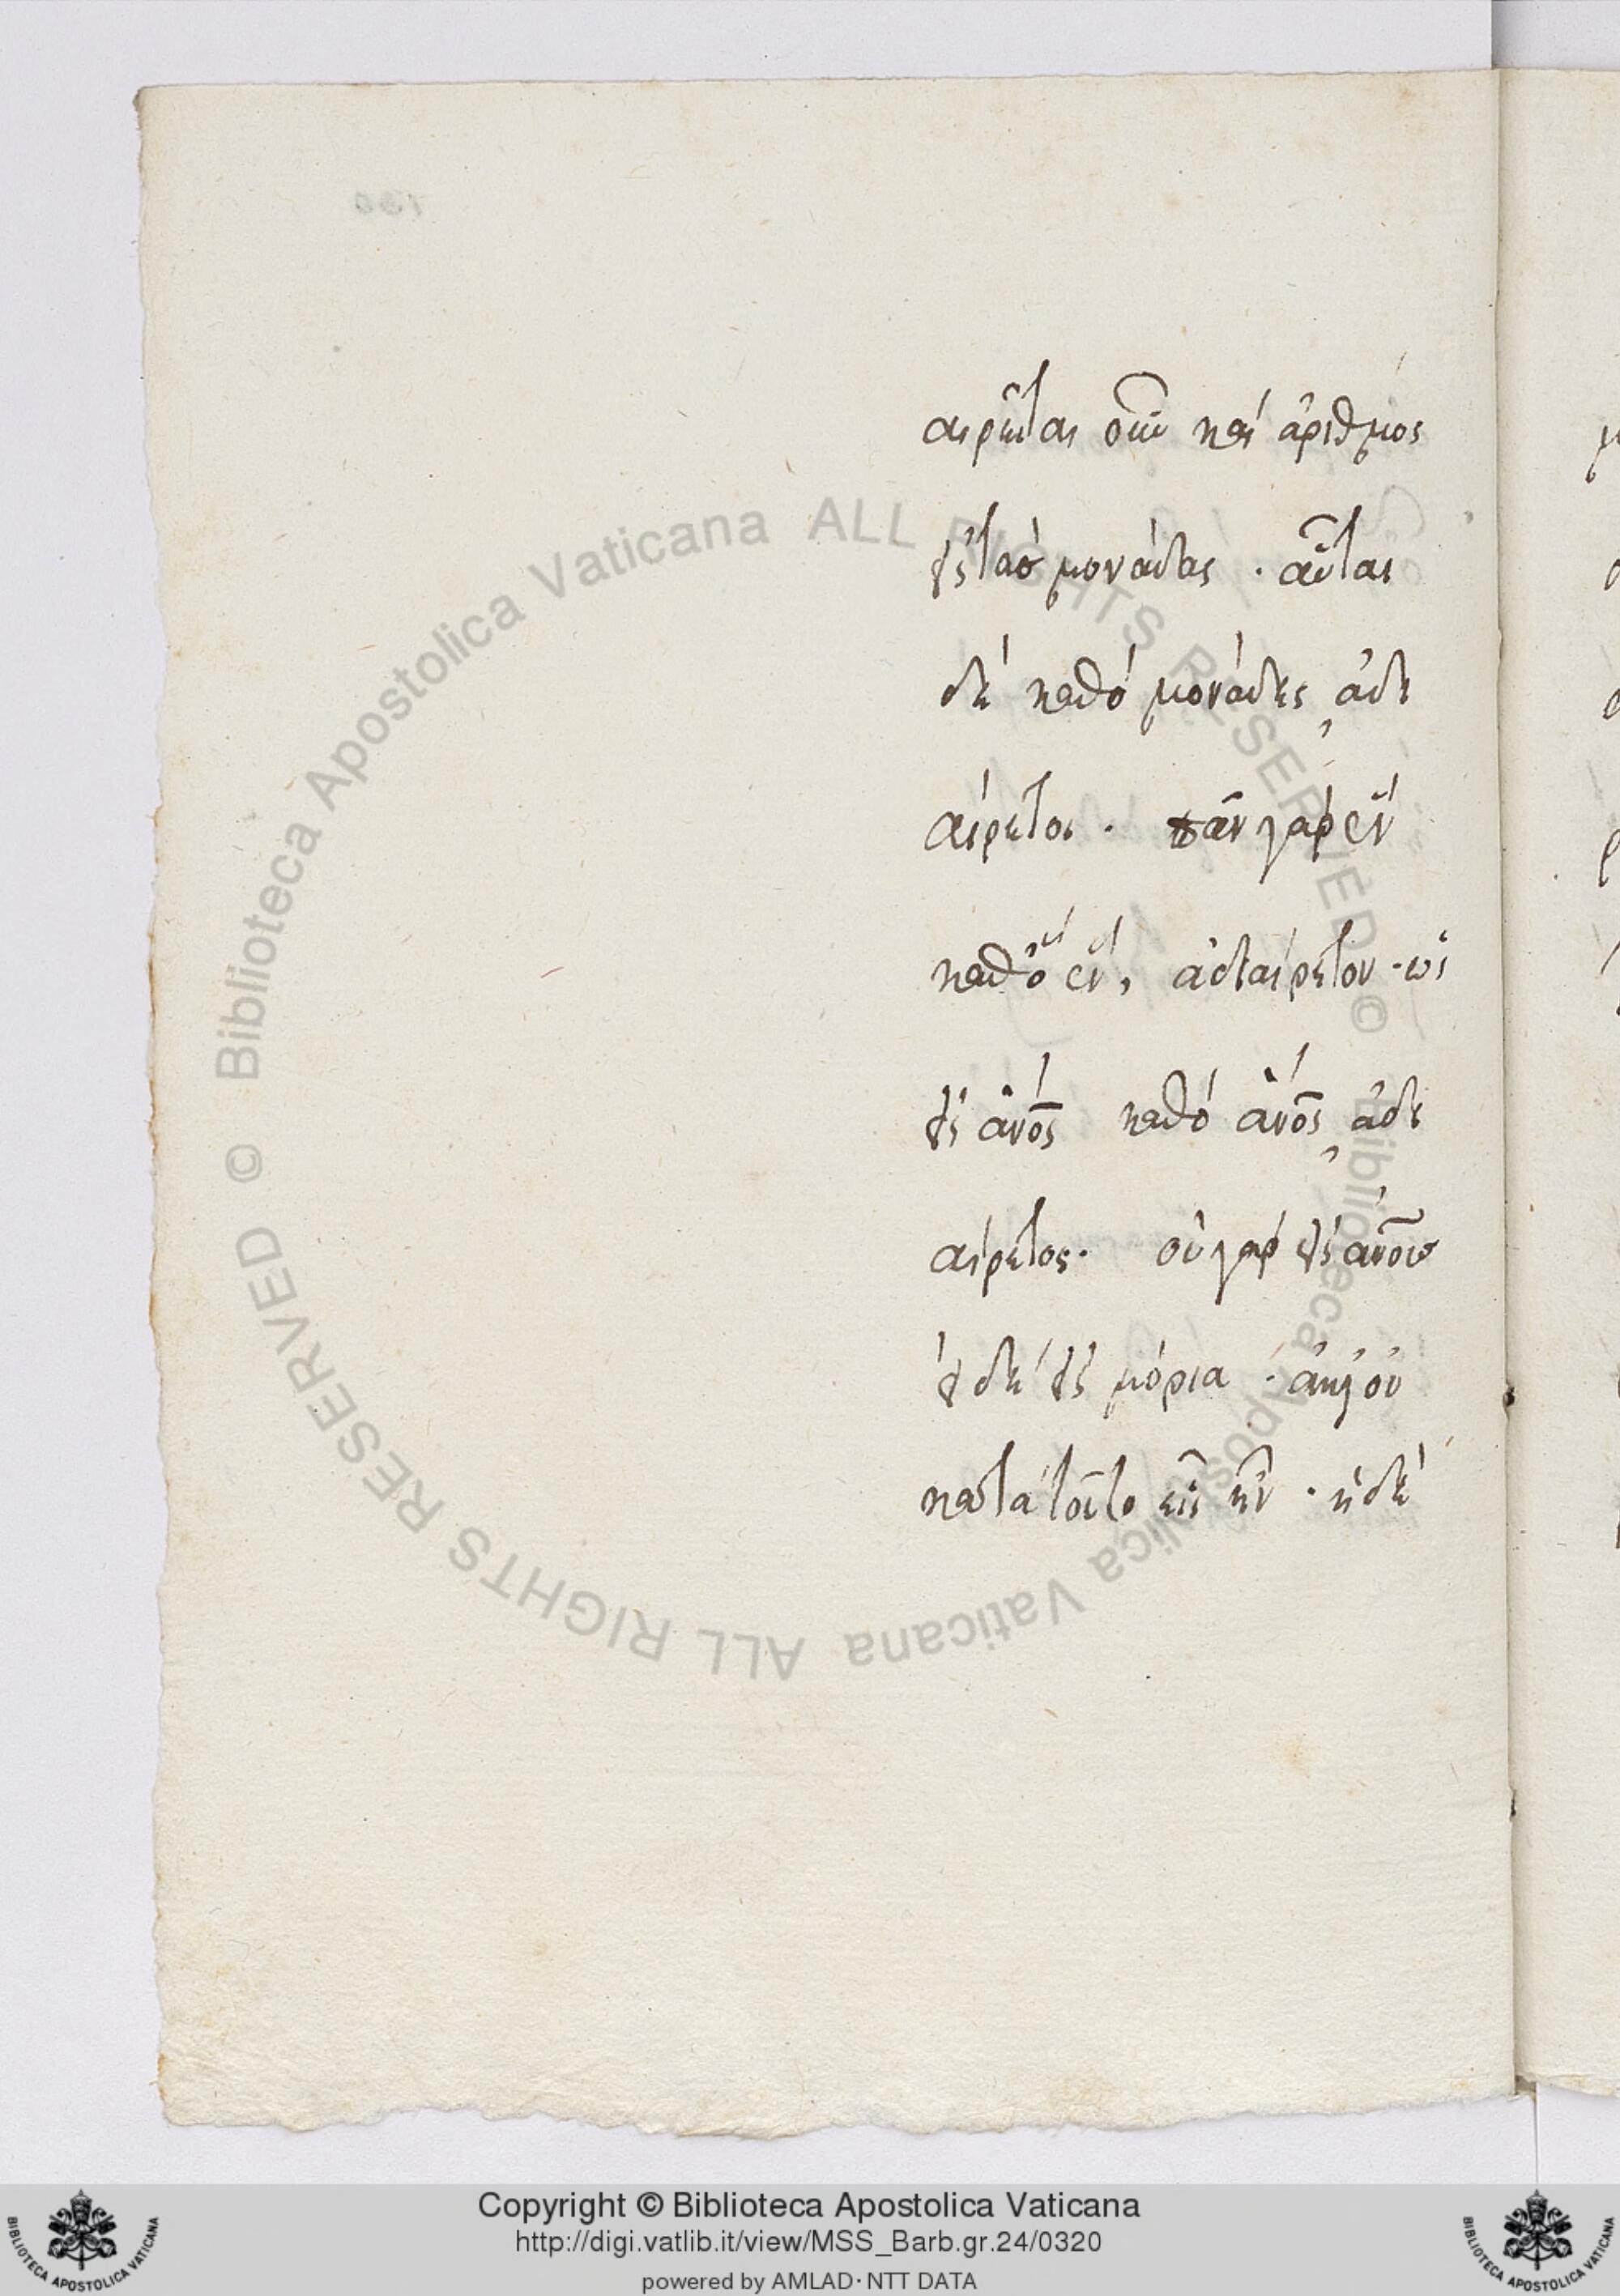 αιρεῖται οὖν καὶ ἀριθμὸς
εἰς τὰς μονάδας · αὗται
δὲ καθὸ μονάδες, ἀδι
αίρετοι · πᾶν γὰρ ἓν
καθὸ ἓν, ἀδιαίρετον · ὡς
εἷς ἄνος καθὸ ἄνος, ἀδι
αίρετος · οὐ γὰρ εἰς ἀνους
εἰ δὲ εἰς μόρια · ἀλλ' οὐ
κατὰ τοῦτο εἷς ἦν · ἡ δὲ
© Biblioteca Apostolica Vaticana ALL RIGHTS RESERVED © Biblioteca Apostolica Vaticana ALL RIGHTS RESERVED
Copyright © Biblioteca Apostolica Vaticana
http://digi.vatlib.it/view/MSS_Barb.gr.24/0320
powered by AMLAD · NTT DATA
BIBLIOTECA APOSTOLICA VATICANA
BIBLIOTECA APOSTOLICA VATICANA